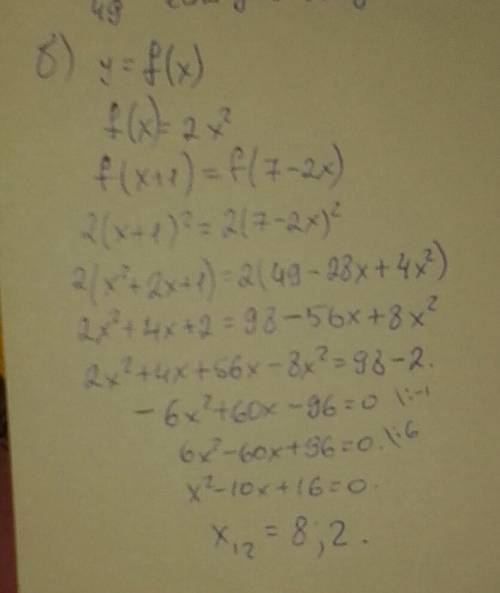 49
б) y = f(x)
f(x) = 2x²
f(x+1) = f(7-2x)
2(x+1)² = 2(7-2x)²
2(x²+2x+1) = 2(49-28x+4x²)
2x²+4x+2 = 98-56x+8x²
2x²+4x+56x-8x² = 98-2.
-6x²+60x-96=0 |:-1
6x²-60x+96=0. |:6
x²-10x+16=0.
x₁₂ = 8; 2.